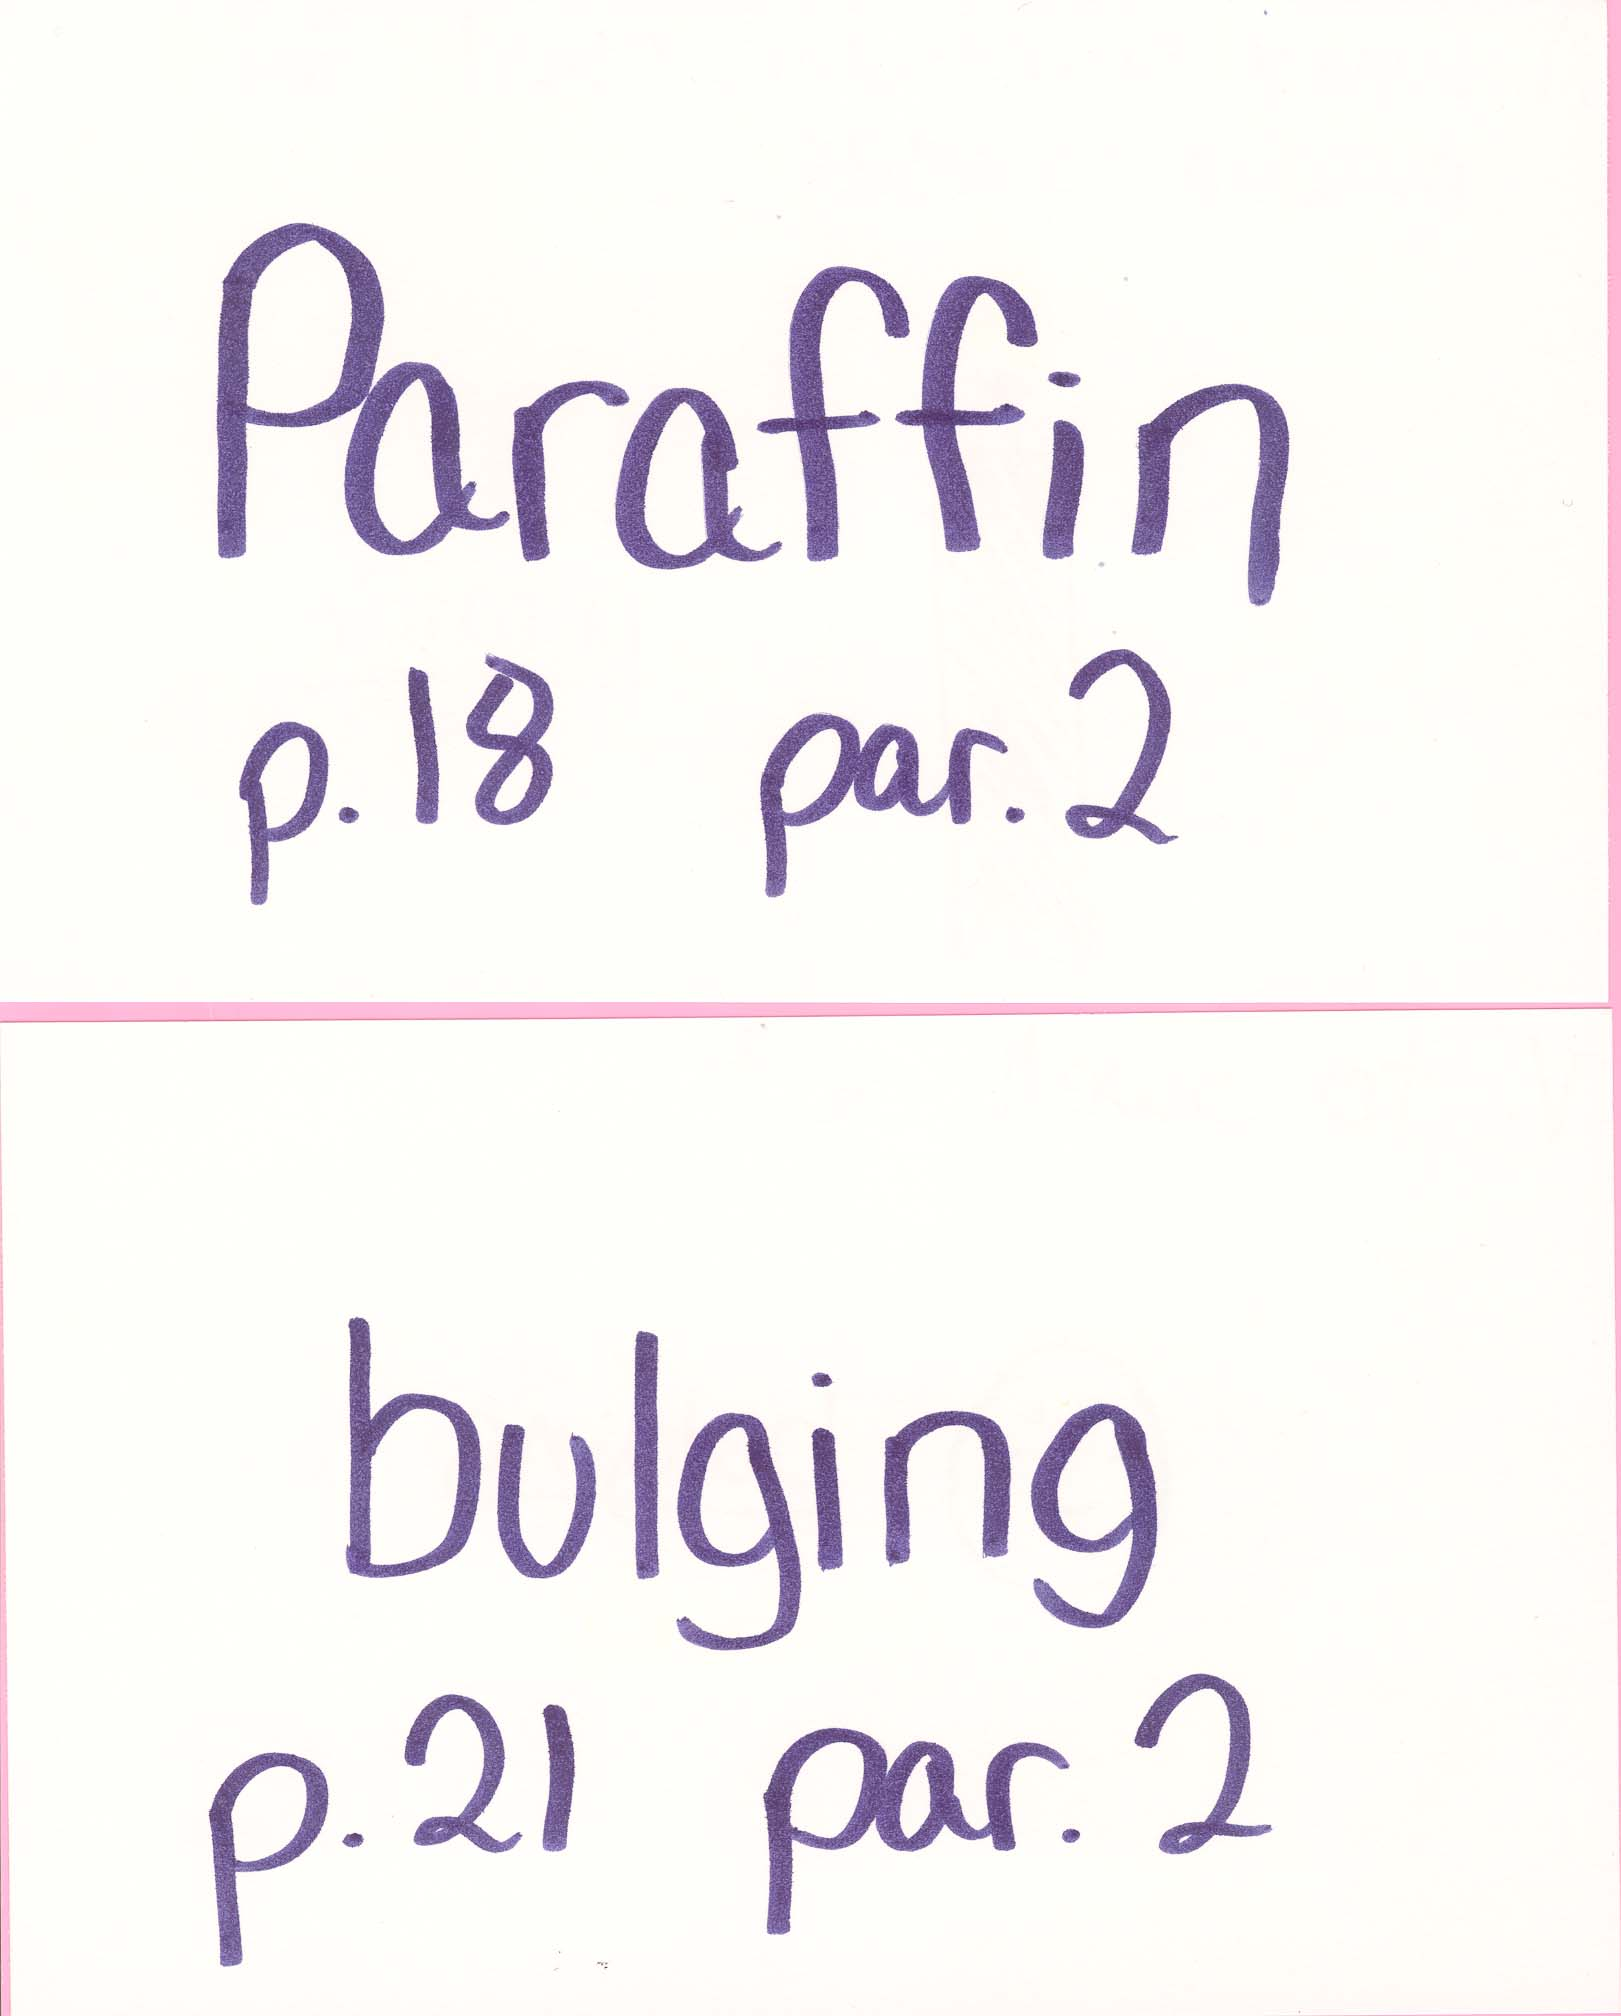 Paraffin
p. 18 par. 2
bulging
p. 21 par. 2